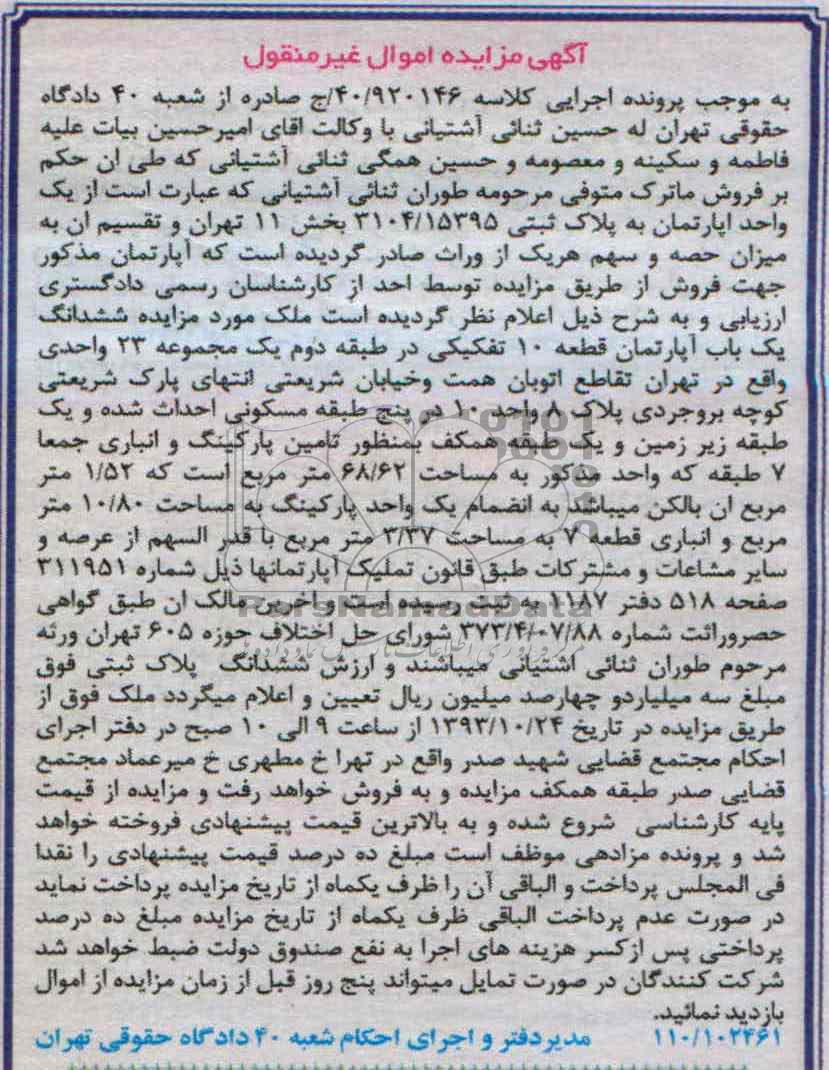 آگهی مزایده اموال غیرمنقول
به موجب پرونده اجرایی کلاسه ۴۰/۹۲۰۱۴۶/ج صادره از شعبه ۴۰ دادگاه
حقوقی تهران له حسین ثنائی آشتیانی با وکالت اقای امیرحسین بیات علیه
فاطمه و سکینه و معصومه و حسین همگی ثنائی آشتیانی که طی ان حکم
بر فروش ماترک متوفی مرحومه طوران ثنائی آشتیانی که عبارت است از یک
واحد اپارتمان به پلاک ثبتی ۳۱۰۴/۱۵۳۹۵ بخش ۱۱ تهران و تقسیم ان به
میزان حصه و سهم هریک از وراث صادر گردیده است که آپارتمان مذکور
جهت فروش از طریق مزایده توسط احد از کارشناسان رسمی دادگستری
ارزیابی و به شرح ذیل اعلام نظر گردیده است ملک مورد مزایده ششدانگ
یک باب آپارتمان قطعه ۱۰ تفکیکی در طبقه دوم یک مجموعه ۲۳ واحدی
واقع در تهران تقاطع اتوبان همت وخیابان شریعتی انتهای پارک شریعتی
کوچه بروجردی پلاک ۸ واحد ۱۰ در پنج طبقه مسکونی احداث شده و یک
طبقه زیر زمین و یک طبقه همکف بمنظور تامین پارکینگ و انباری جمعا
۷ طبقه که واحد مذکور به مساحت ۶۸/۶۲ متر مربع است که ۱/۵۲ متر
مربع ان بالکن میباشد به انضمام یک واحد پارکینگ به مساحت ۱۰/۸۰ متر
مربع و انباری قطعه ۷ به مساحت ۳/۳۷ متر مربع با قدر السهم از عرصه و
سایر مشاعات و مشترکات طبق قانون تملیک آپارتمانها ذیل شماره ۳۱۱۹۵۱
صفحه ۵۱۸ دفتر ۱۱۸۷ به ثبت رسیده است و اخرین مالک ان طبق گواهی
حصروراثت شماره ۳۷۳/۴/۰۷/۸۸ شورای حل اختلاف حوزه ۶۰۵ تهران ورثه
مرحوم طوران ثنائی اشتیانی میباشند و ارزش ششدانگ پلاک ثبتی فوق
مبلغ سه میلیاردو چهارصد میلیون ریال تعیین و اعلام میگردد ملک فوق از
طریق مزایده در تاریخ ۱۳۹۳/۱۰/۲۴ از ساعت ۹ الی ۱۰ صبح در دفتر اجرای
احکام مجتمع قضایی شهید صدر واقع در تهرا خ مطهری خ میرعماد مجتمع
قضایی صدر طبقه همکف مزایده و به فروش خواهد رفت و مزایده از قیمت
پایه کارشناسی شروع شده و به بالاترین قیمت پیشنهادی فروخته خواهد
شد و پرونده مزادهی موظف است مبلغ ده درصد قیمت پیشنهادی را نقدا
فی المجلس پرداخت و الباقی آن را ظرف یکماه از تاریخ مزایده پرداخت نماید
در صورت عدم پرداخت الباقی ظرف یکماه از تاریخ مزایده مبلغ ده درصد
پرداختی پس ازکسر هزینه های اجرا به نفع صندوق دولت ضبط خواهد شد
شرکت کنندگان در صورت تمایل میتواند پنج روز قبل از زمان مزایده از اموال
بازدید نمائید.
۱۱۰/۱۰۲۴۶۱ مدیردفتر و اجرای احکام شعبه ۴۰ دادگاه حقوقی تهران
ParsNamadData